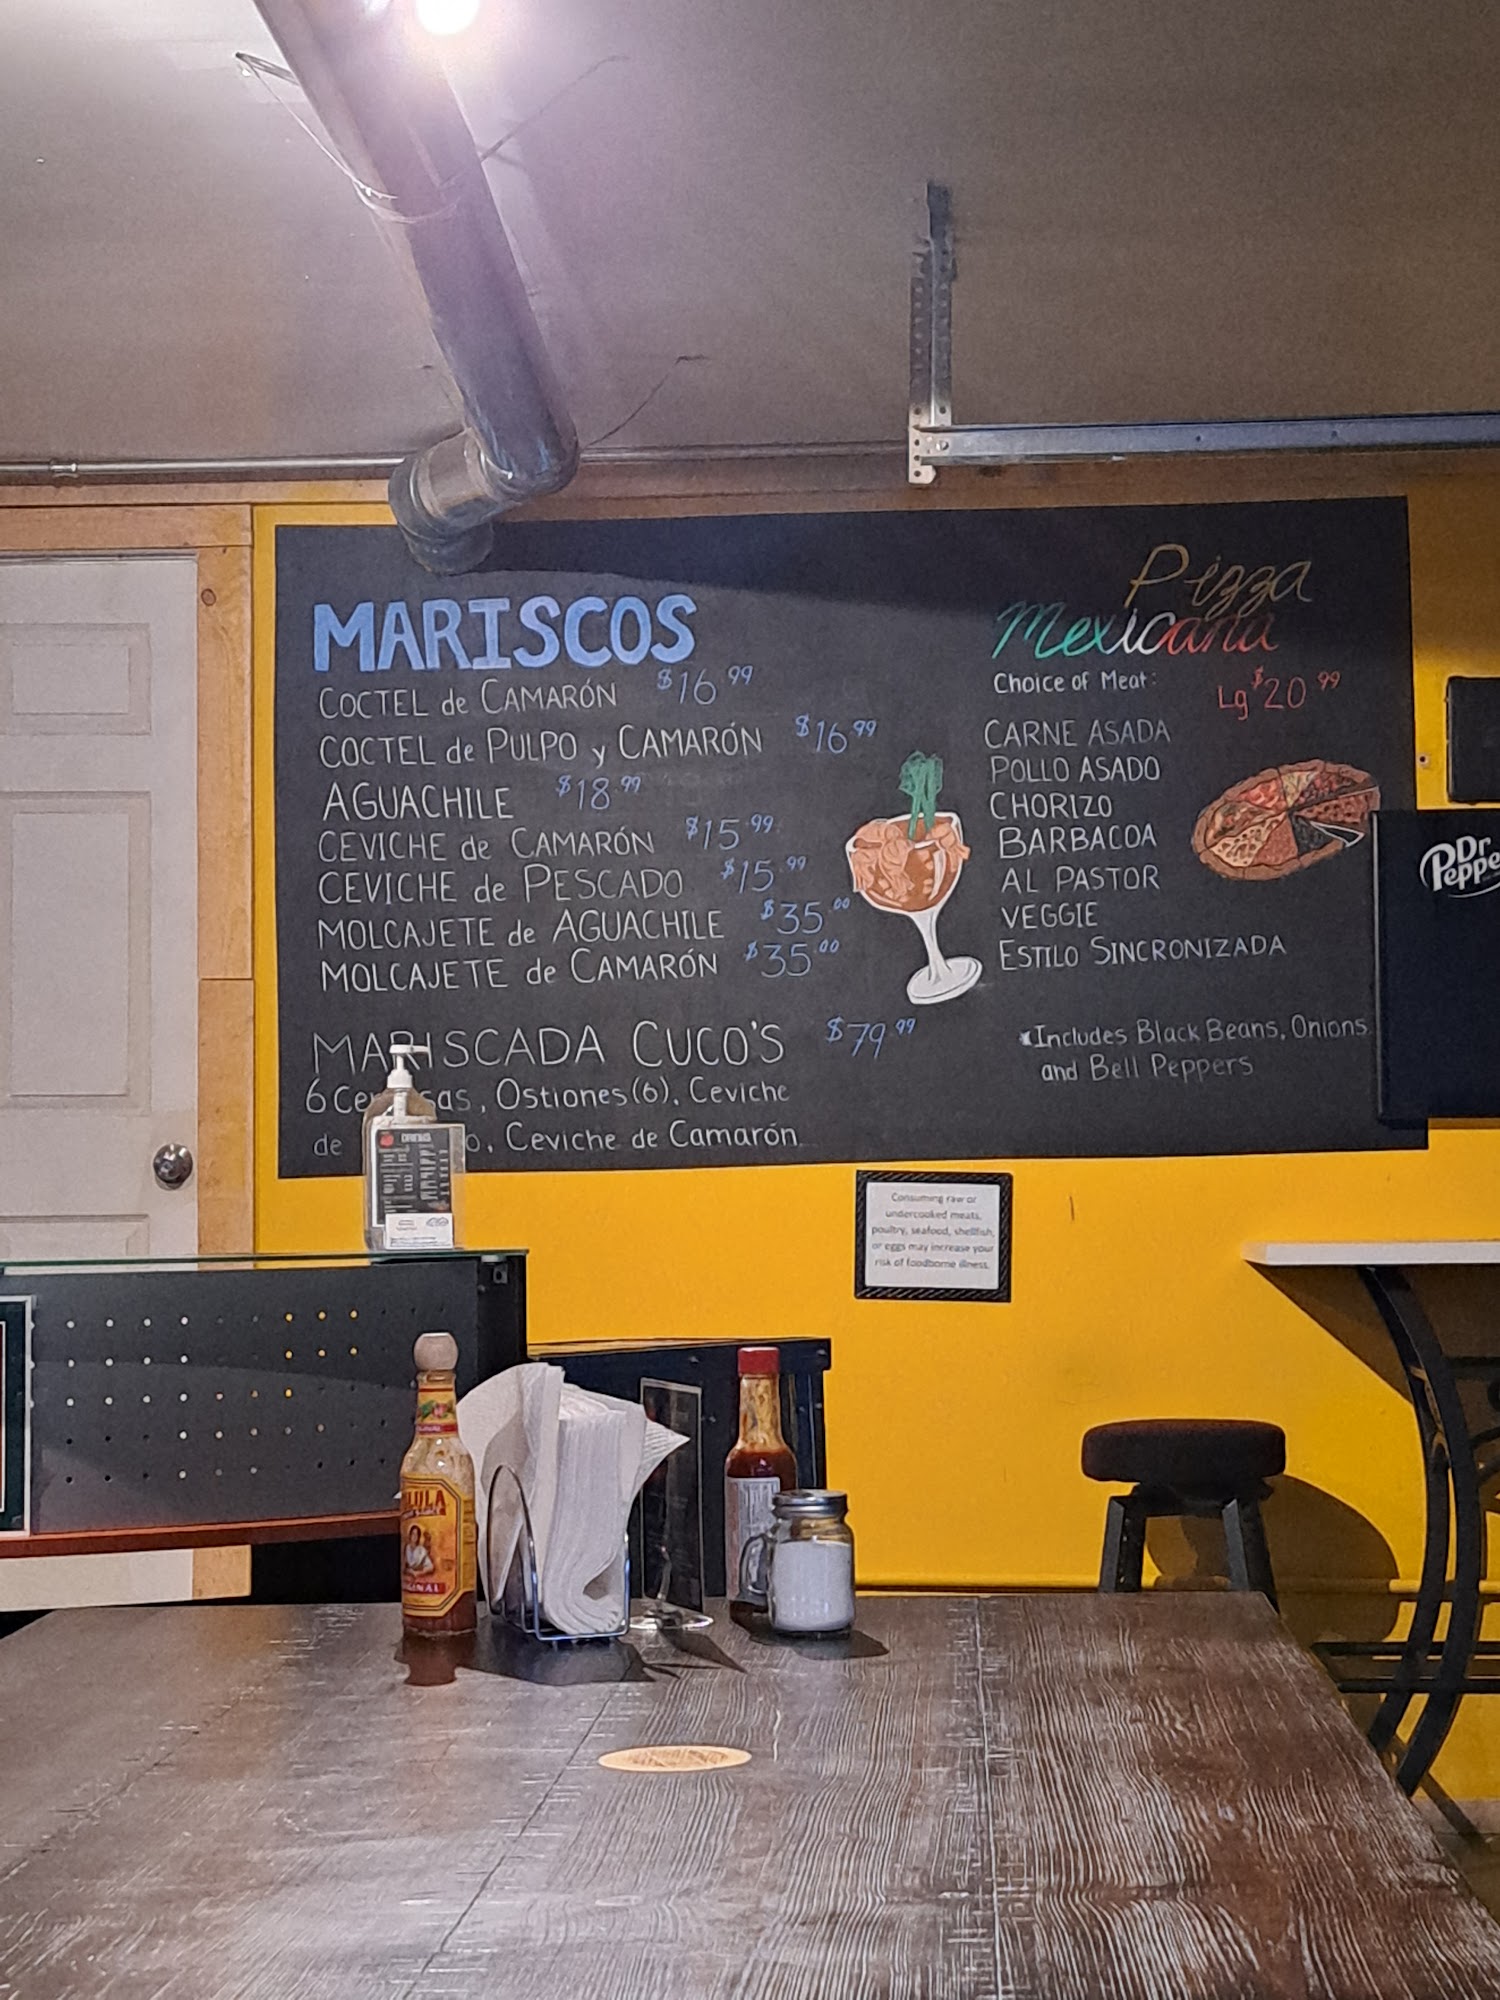 MARISCOS
COCTEL de CAMARÓN $16.99
COCTEL de PULPO y CAMARÓN $16.99
AGUACHILE $18.99
CEVICHE de CAMARÓN $15.99
CEVICHE de PESCADO $15.99
MOLCAJETE de AGUACHILE $35.00
MOLCAJETE de CAMARÓN $35.00
MARISCADA CUCO'S $79.99
6 Ce sas, Ostiones(6), Ceviche
de o, Ceviche de Camarón
Pizza
Mexicana
Choice of Meat:
Lg $20.99
CARNE ASADA
POLLO ASADO
CHORIZO
BARBACOA
AL PASTOR
VEGGIE
ESTILO SINCRONIZADA
*Includes Black Beans, Onions
and Bell Peppers
Dr
Pepper
Consuming raw or
undercooked meats,
poultry, seafood, shellfish,
or eggs may increase your
risk of foodborne illness.
DRINKS
LULA
GINAL